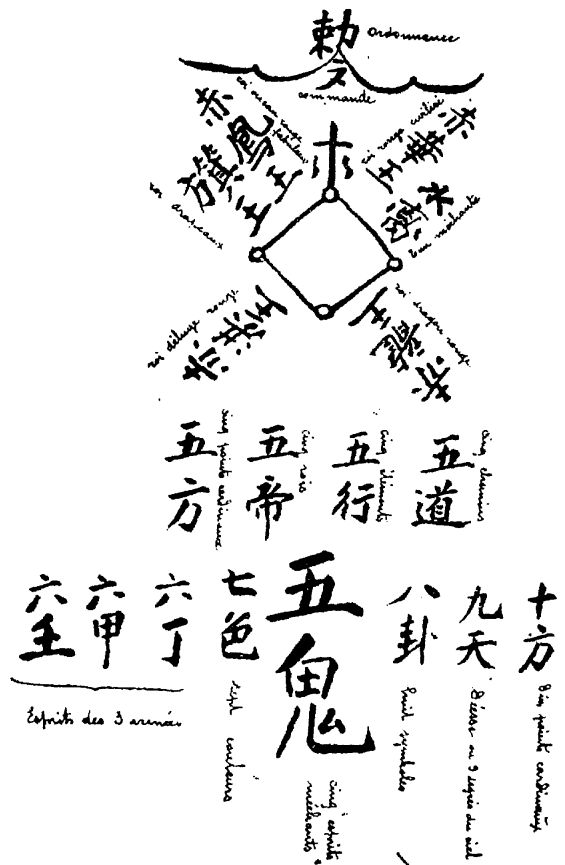 勅 ordonnance
令 commande
赤鳳王
roi oiseau rouge fabuleux
赤華王
roi rouge civilisé
方旗王
roi drapeaux
水
eau méchante
赤洪王
roi déluge rouge
赤龍王
roi dragon rouge
五方
cinq points cardinaux
五帝
cinq rois
五行
cinq éléments
五道
cinq chemins
六壬
六甲
六丁
Esprits des 3 armées
七色
sept couleurs
五鬼
cinq esprits méchants
八卦
huit symboles
九天
Déesse ou 9 degrés du ciel
十方
Dix points cardinaux